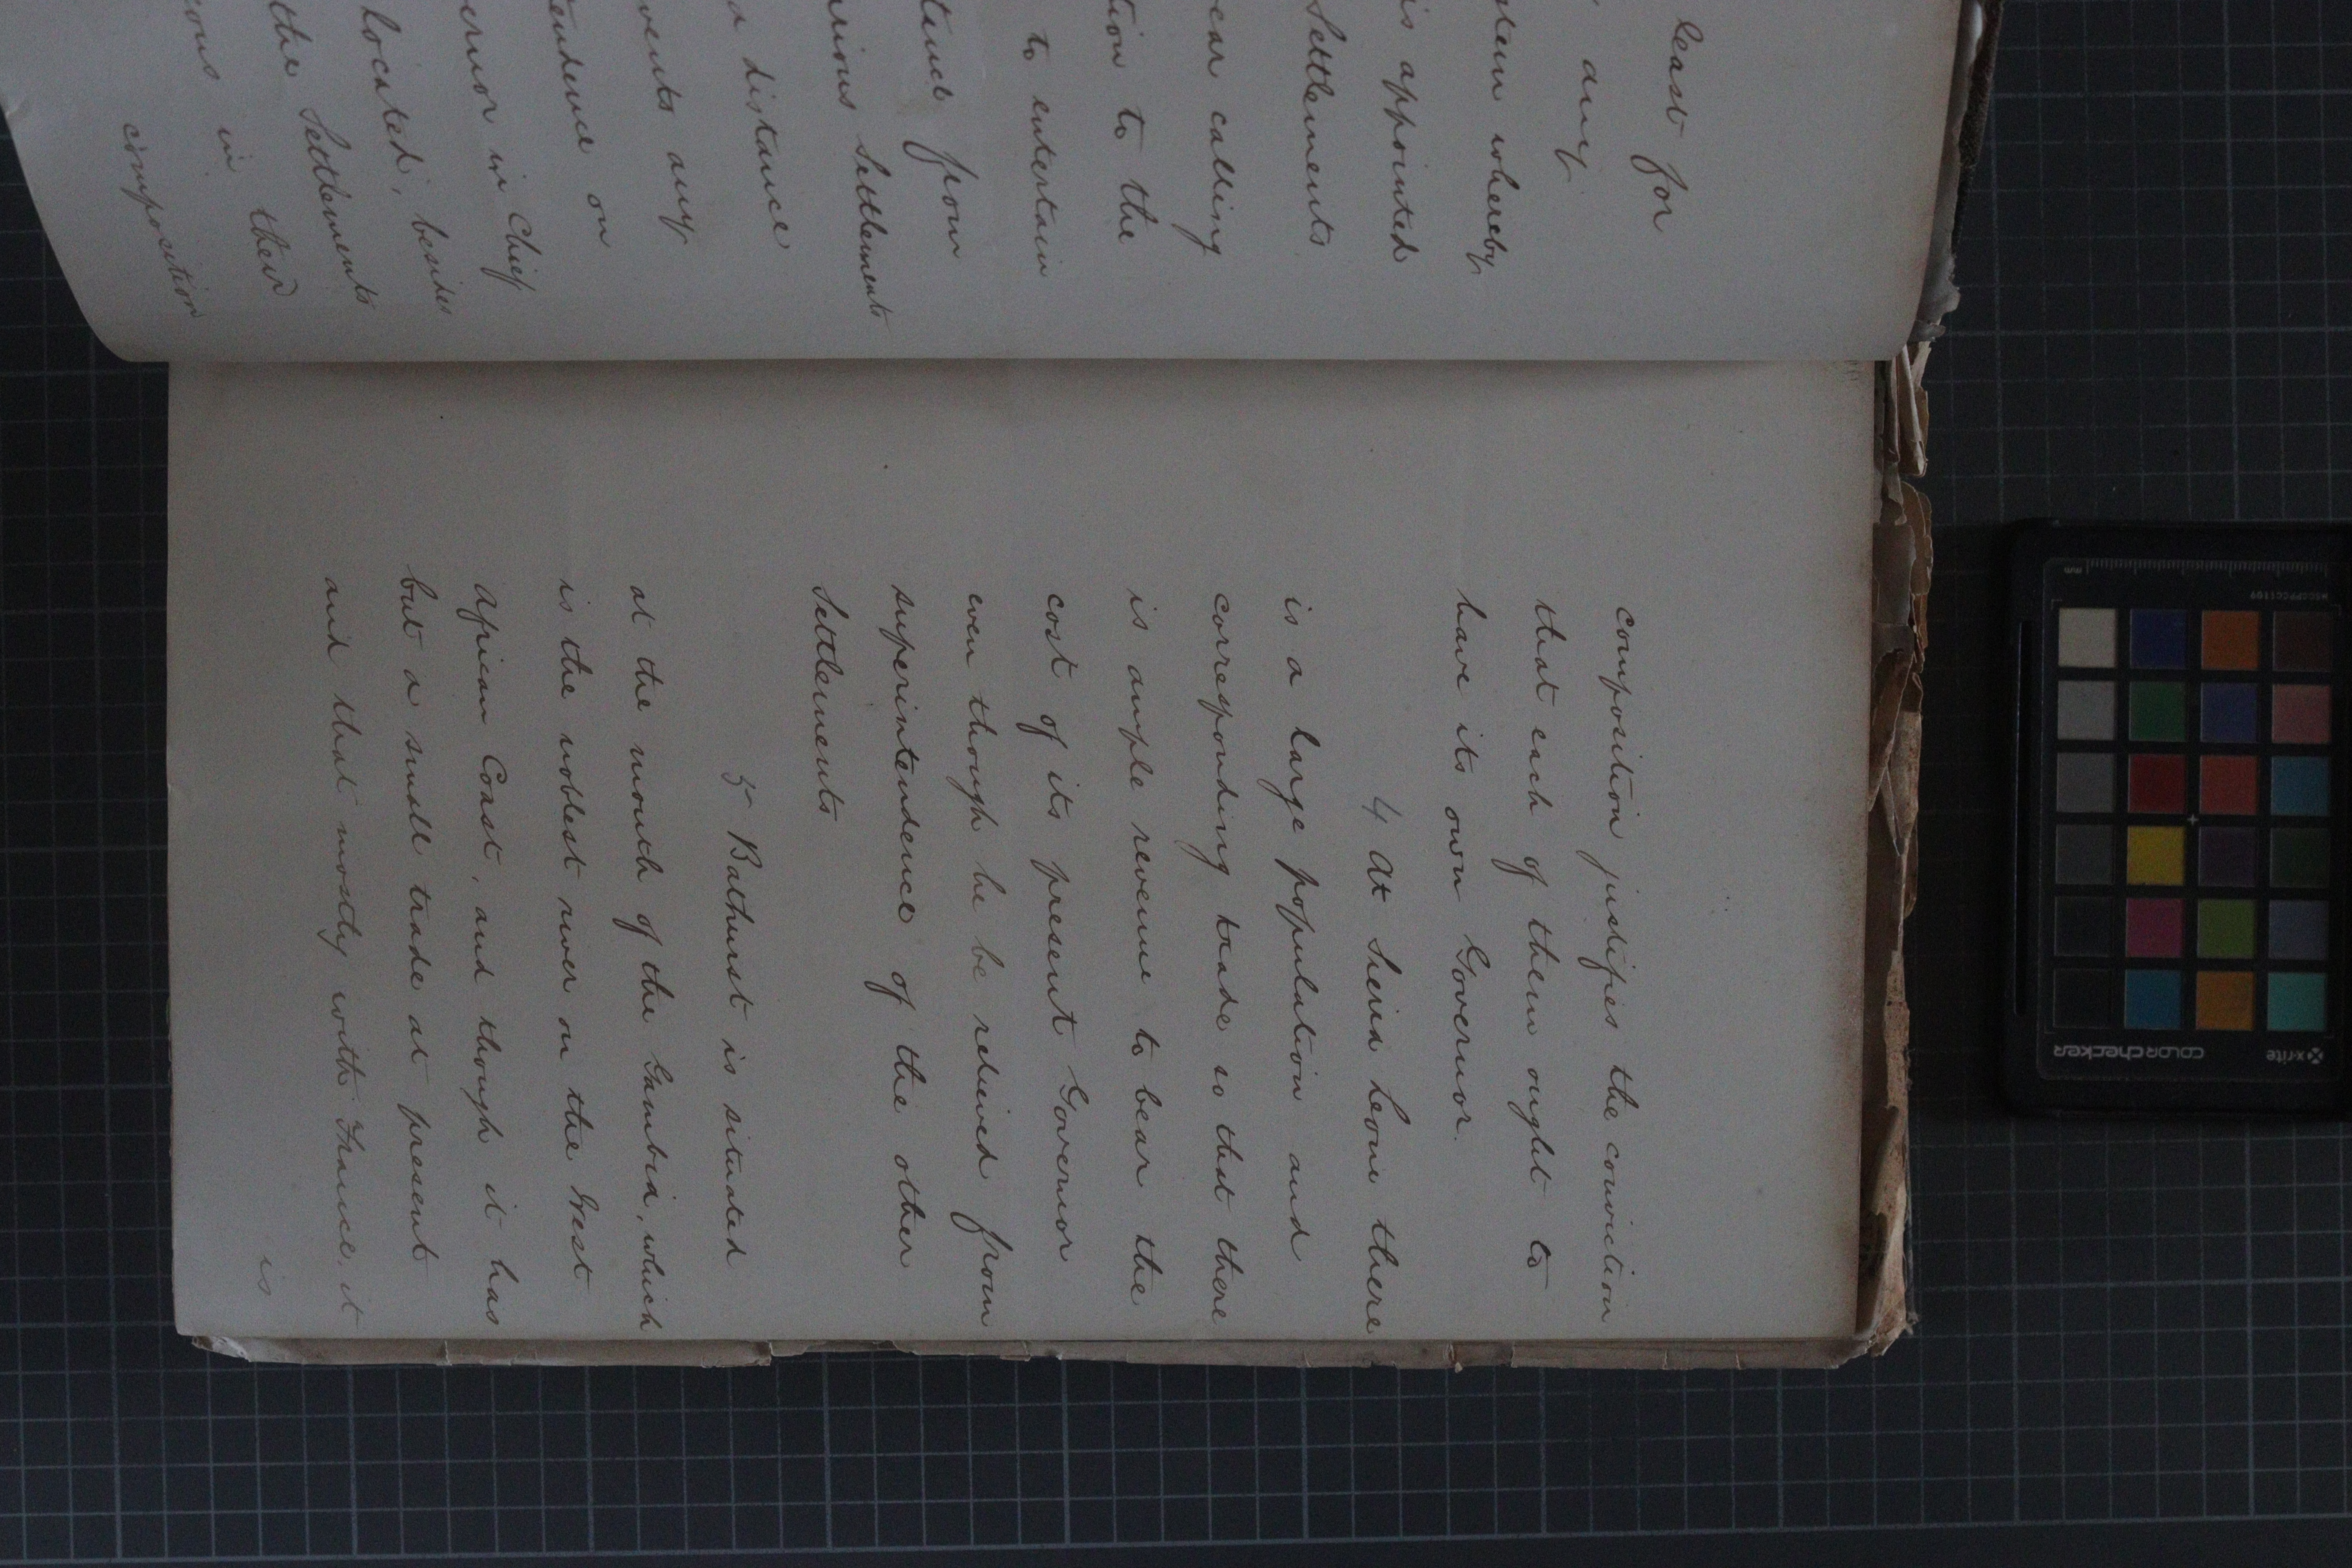 least for
any
stem whereby
is appointed
Settlements
ear calling
tion to the
to entertain
tance from
rious Settlements
a distance
vents any
tendence on
ernor in Chief
located, besides
the Settlements
eous in their
composition
composition justifies the conviction
that each of them ought to
have its own Governor.
4 At Sierra Leone there
is a large population and
corresponding trade so that there
is ample revenue to bear the
cost of its present Governor
even though he be relieved from
superintendence of the other
Settlements
5 Bathurst is situated
at the mouth of the Gambia, which
is the noblest river on the West
African Coast, and though it has
but a small trade at present
and that mostly with France, it
is
mm
x-rite
colorchecker